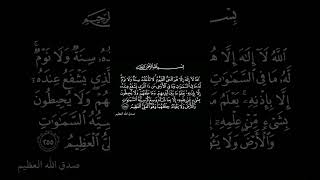 بِسْمِ ٱللَّهِ ٱلرَّحْمَٰنِ ٱلرَّحِيمِ
ٱللَّهُ لَآ إِلَٰهَ إِلَّا هُوَ ٱلْحَىُّ ٱلْقَيُّومُ لَا تَأْخُذُهُۥ سِنَةٌ وَلَا نَوْمٌ
لَّهُۥ مَا فِى ٱلسَّمَٰوَٰتِ وَمَا فِى ٱلْأَرْضِ مَن ذَا ٱلَّذِى يَشْفَعُ عِندَهُۥٓ
إِلَّا بِإِذْنِهِۦ يَعْلَمُ مَا بَيْنَ أَيْدِيهِمْ وَمَا خَلْفَهُمْ وَلَا يُحِيطُونَ
بِشَىْءٍ مِّنْ عِلْمِهِۦٓ إِلَّا بِمَا شَآءَ وَسِعَ كُرْسِيُّهُ ٱلسَّمَٰوَٰتِ
وَٱلْأَرْضَ وَلَا يَـُٔودُهُۥ حِفْظُهُمَا وَهُوَ ٱلْعَلِىُّ ٱلْعَظِيمُ ٢٥٥
صدق الله العظيم